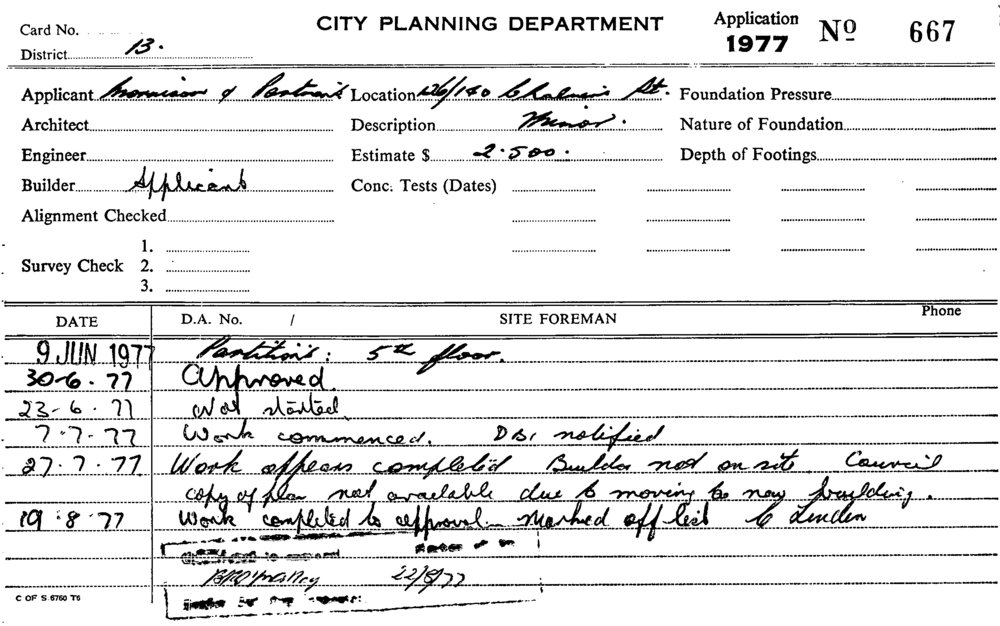 Card No.
CITY PLANNING DEPARTMENT
Application 1977 Nº 667
District 13.
Applicant Morrison & Partners Location 126/140 Chalmers St. Foundation Pressure
Architect Description Minor. Nature of Foundation
Engineer Estimate $ 2.500. Depth of Footings
Builder Applicant Conc. Tests (Dates)
Alignment Checked
1.
Survey Check 2.
3.
DATE D.A. No. / SITE FOREMAN Phone
9 JUN 1977 Partitions: 5th floor.
30-6.77 Approved.
23-6.77 Not started.
7.7.77 Work commenced. DBI notified
27.7.77 Work appears completed Builder not on site Council
copy of plan not available due to moving to new building.
19.8.77 Work completed to approval. Marked off list C Linden
22/8/77
C OF S. 6760 T6